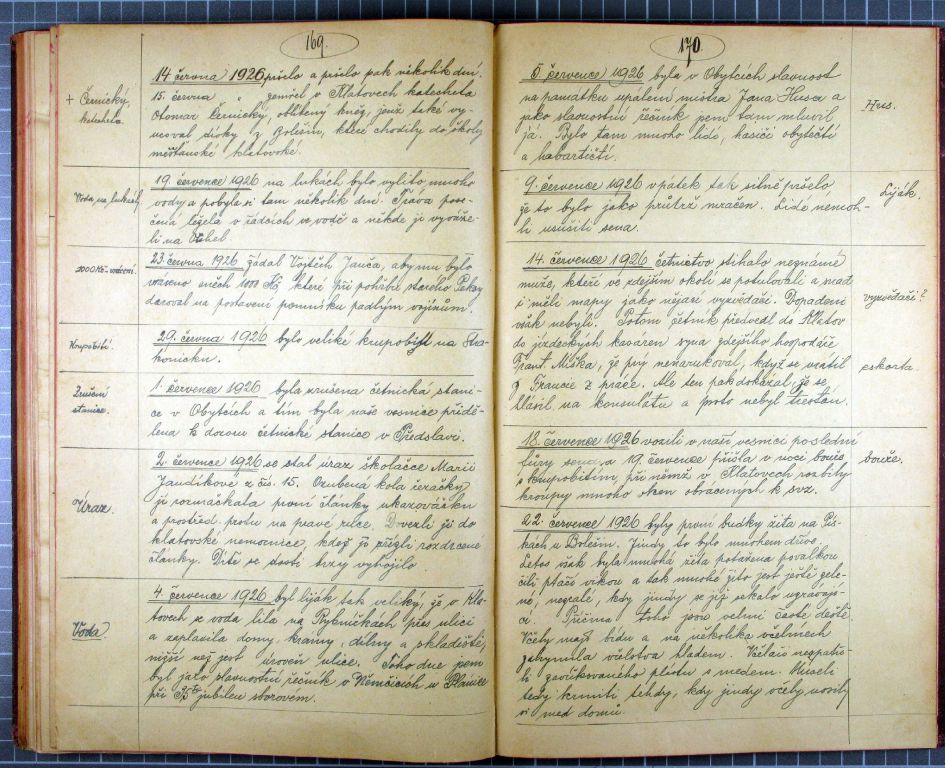 169.
14 června 1926 pršelo a pršelo pak několik dní.
+ Černický,
katecheta.
15. června " zemřel v Klatovech katecheta
Otomar Černický, oblíbený kněz, jenž také vy-
učoval dívky z Bolešin, které chodily do školy
měšťanské klatovské.
Voda na lukách.
19. července 1926 na lukách bylo vylito mnoho
vody a pobyla si tam několik dní. Tráva pose-
čená ležela v řádcích ve vodě a někde ji vyváže-
li na
1000 Kč vrácení.
23. června 1926 žádal Vojtěch Janča, aby mu bylo
vráceno oněch 1000 Kč, které při pohřbu starého
daroval na postavení pomníku padlým vojínům.
Krupobití.
29. června 1926 bylo veliké krupobití na Stra-
konicku.
Zrušení
stanice.
1. července 1926 byla zrušena četnická stani-
ce v Obytcích a tím byla naše vesnice přidě-
lena k dozoru četnické stanice v Předslavi.
Úraz.
2. července 1926 se stal úraz školačce Marii
Jandíkové z čís. 15. Ozubená kola řezačky
jí rozmačkala první články ukazováčku
a prostřed. prstu na pravé ruce. Dovezli ji do
klatovské nemocnice, kdež jí uřízli rozdrcené
články. Dítě se dosti brzy vyhojilo.
Voda.
4. července 1926 byl liják tak veliký, že v Kla-
tovech se voda lila na Rybníčkách přes ulici
a zaplavila domy, krámy, dílny a skladiště,
nižší než jest úroveň ulice. Toho dne jsem
byl jako slavnostní řečník v Němčicích u Plánice
při jubileu sborovém.
170.
5. července 1926 byla v Obytcích slavnost
na památku upálení mistra Jana Husa a
jako slavnostní řečník jsem tam mluvil
já. Bylo tam mnoho lidí, hasiči obytečtí
a habartičtí.
Hus.
9. července 1926 v pátek tak silně pršelo
že to bylo jako průtrž mračen. Lidé nemoh-
li usušiti sena.
Liják.
14. července 1926 četnictvo stíhalo neznámé
muže, kteří ve zdejším okolí se potulovali a snad
i měli mapy jako nějací vyzvědači. Dopadeni
však nebyli. Potom četník předvedl do Klatov
do jezdeckých kasáren syna zdejšího hospodáře
Frant. Miška, že prý nenarukoval, když se vrátil
z Francie z práce. Ale ten pak dokázal, že se
hlásil na konsulátu a proto nebyl trestán.
vyzvědači?
eskorta.
18. července 1926 vozili v naší vesnici poslední
fůry sena, a 19. července přišla v noci bouře
s krupobitím, při němž v Klatovech rozbily
kroupy mnoho oken obrácených k svz.
bouře.
22. července 1926 byly první budky žita na Pís-
kách u Bolešin. Jindy to bylo mnohem dříve.
Letos však byla mnohá žita potažena povalkou
čili ptačí vikou a tak mnohé žito jest ještě zele-
né, nezralé, kdy jindy se již sekalo
ci. Příčina toho jsou velmi časté deště.
Včely mají bídu a na několika včelínech
zahynula včelstva hladem. Včelaři nespatři-
li zavíčkovaného plástu s medem. Museli
tedy krmiti tehdy, kdy jindy včely nosily
si med domů.